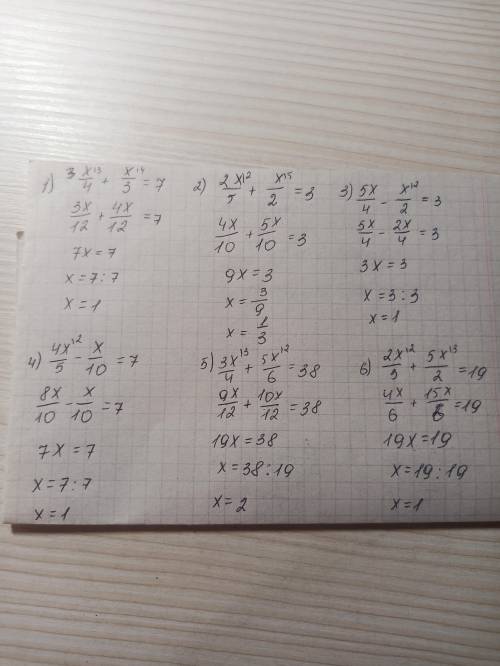 1) 3 x|3/4 + x|4/3 = 7
3x/12 + 4x/12 = 7
7x = 7
x = 7 : 7
x = 1
2) 2x|2/5 + x|5/2 = 3
4x/10 + 5x/10 = 3
9x = 3
x = 3/9
x = 1/3
3) 5x/4 - x|2/2 = 3
5x/4 - 2x/4 = 3
3x = 3
x = 3 : 3
x = 1
4) 4x|2/5 - x/10 = 7
8x/10 - x/10 = 7
7x = 7
x = 7 : 7
x = 1
5) 3x|3/4 + 5x|2/6 = 38
9x/12 + 10x/12 = 38
19x = 38
x = 38 : 19
x = 2
6) 2x|2/3 + 5x|3/2 = 19
4x/6 + 15x/6 = 19
19x = 19
x = 19 : 19
x = 1